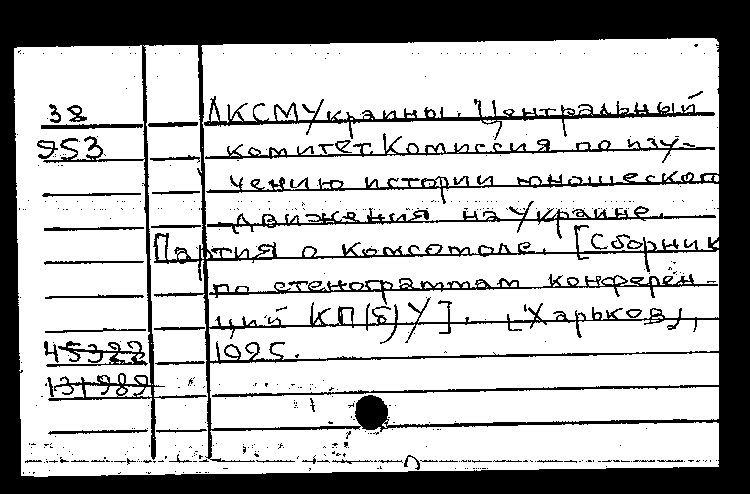 38 ЛКСМ Украины. Центральный
953 комитет. Комиссия по изу-
чению истории юношеского
движения на Украине.
Партия о комсомоле. [Сборник
по стенограммам конферен-
ций КП(б)У]. [Харьков],
45322 1925.
131989